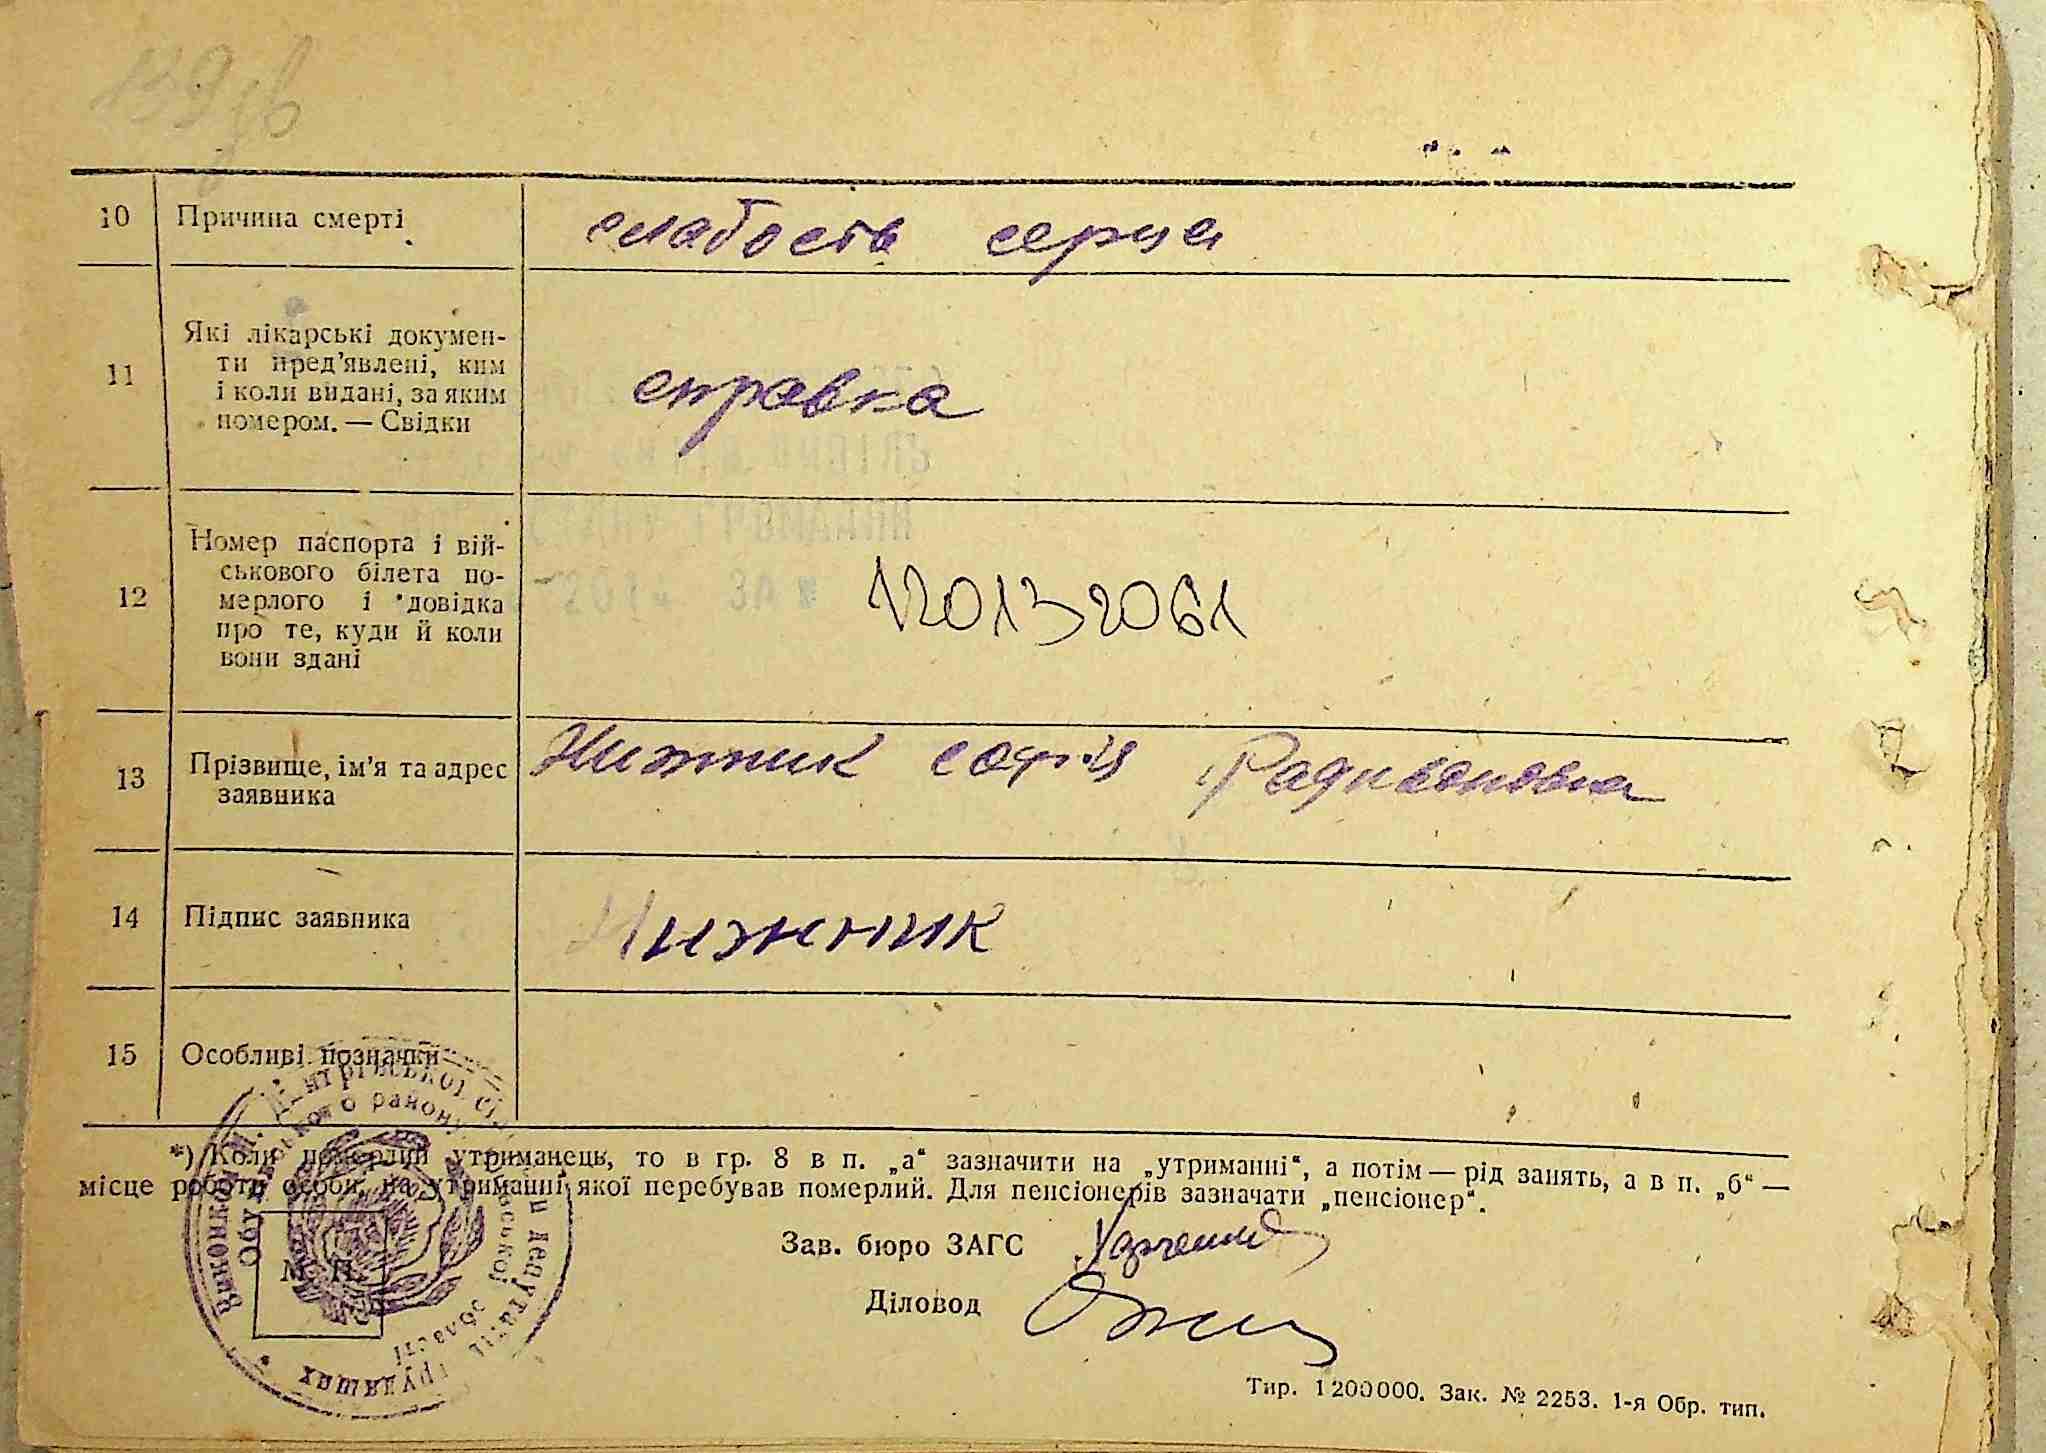 139 зв
10 Причина смерті слабость серца
11 Які лікарські докумен-
ти пред'явлені, ким
і коли видані, за яким
номером. — Свідки
справка
12 Номер паспорта і вій-
ськового білета по-
мерлого і довідка
про те, куди й коли
вони здані
13 Прізвище, ім'я та адрес
заявника
Нижник софія Радивоновна
14 Підпис заявника Нижник
15 Особливі позначки
*) Коли померлий утриманець, то в гр. 8 в п. „а“ зазначити на „утриманні“, а потім — рід занять, а в п. „б“ —
місце роботи особи, на утриманні якої перебував померлий. Для пенсіонерів зазначати „пенсіонер“.
Зав. бюро ЗАГС Харченко
Діловод
М. П.
Виконком Дмитрівської сі депутатів трудящих
району області
Тир. 1200000. Зак. № 2253. 1-я Обр. тип.